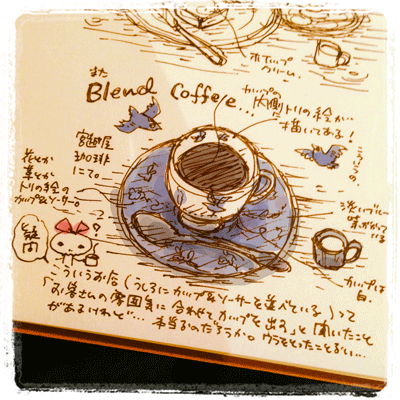 ホイップ
クリーム.
また
Blend Coffee...
カップの
内側にトリの絵が…
描いてある!
宮越屋
珈琲
にて。
花とか
葉とか
トリの絵の
カップ&ソーサー。
こういうの。
渋いブルー
味がでている
カップは
白.
疑問
こういうお店(うしろにカップ&ソーサーを並べている)って
「お客さんの雰囲気に合わせてカップを出す。」と聞いたこと
があるけれど… 本当なのだろうか。ウラをとったことない…